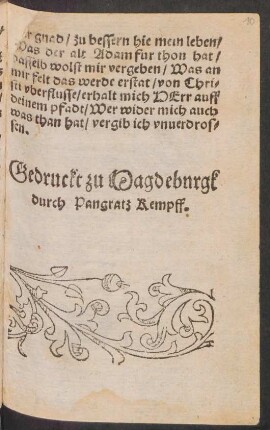 gnad / zu bessern hie mein leben /
Was der alt Adam fur thon hat /
Dasselb wolst mir vergeben / Was an
mir felt das werde erstat / von Chri-
sti vberflusse / erhalt mich HErr auff
deinem pfadt / Wer wider mich auch
was than hat / vergib ich vnuerdros-
sen.
Gedruckt zu Magdeburgk
durch Pangratz Kempff.